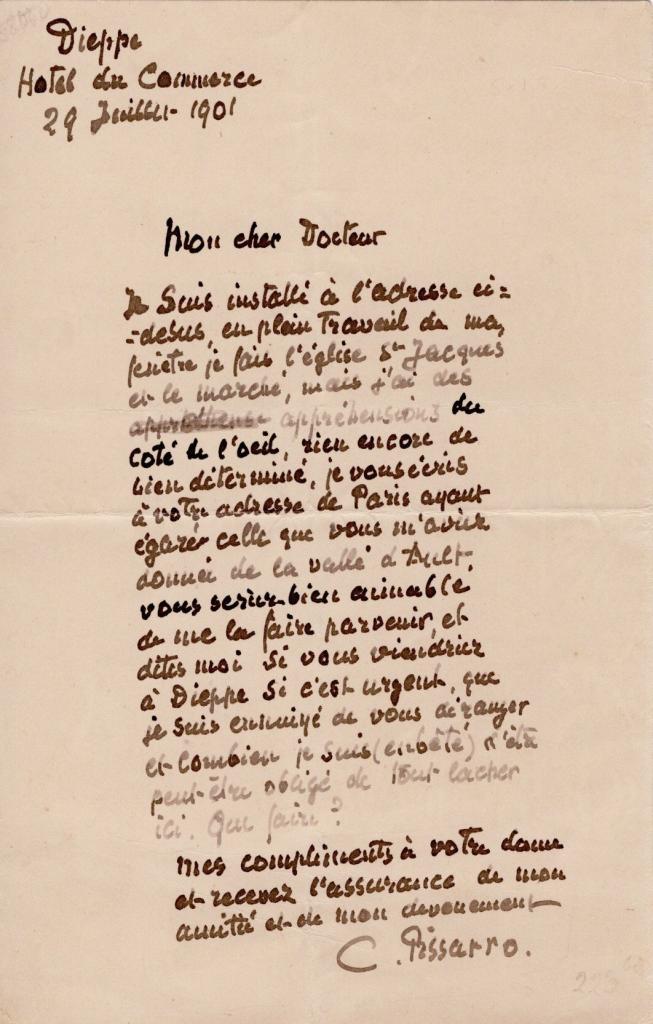 Dieppe
Hotel du Commerce
29 Juillet 1901
Mon cher Docteur
Je Suis installé à l'adresse ci=
-desus, en plein Travail de ma,
fenêtre je fais l'église St Jacques
et le marché, mais j'ai des
appréhensions du
coté de l'oeil, rien encore de
bien déterminé, je vous écris
à votre adresse de Paris ayant
égaré celle que vous m'aviez
donnée de la vallé d'Ault,
vous seriez bien aimable
de me la faire parvenir, et
dites moi Si vous viendriez
à Dieppe Si c'est urgent, que
je suis ennuiyé de vous déranger
et combien je suis (enbêté) d'être
peut-être obligé de tout lacher
ici. Que faire?
mes compliments à votre dame
et recevez l'assurance de mon
amitié et de mon devouement
C. Pissarro.